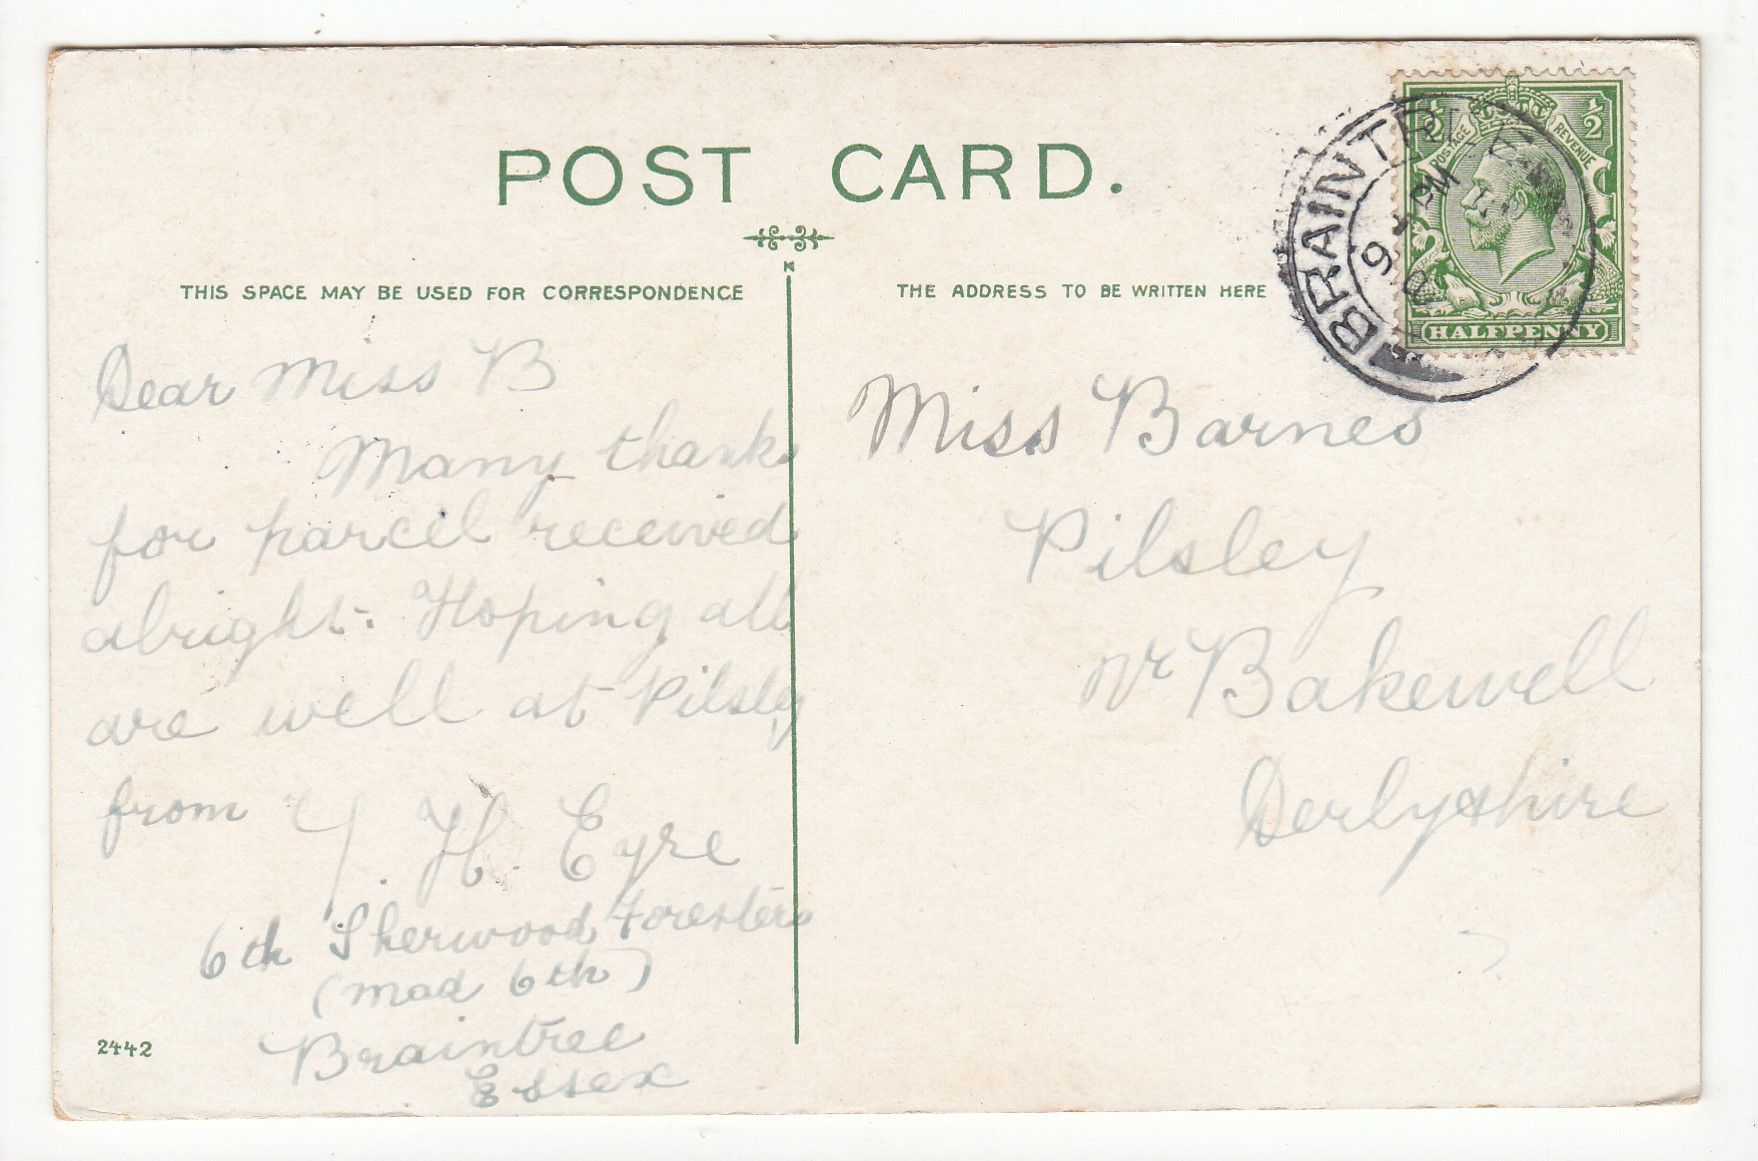 POST CARD.
THIS SPACE MAY BE USED FOR CORRESPONDENCE
THE ADDRESS TO BE WRITTEN HERE
Dear Miss B
Many thanks
for parcel received
alright. Hoping all
are well at Pilsley
from Y. H. Eyre
6th Sherwood Foresters
(mad 6th)
Braintree
Essex
2442
Miss Barnes
Pilsley
Nr Bakewell
Derbyshire
BRAINTREE
9
PM
1/2
1/2
POSTAGE
REVENUE
HALFPENNY